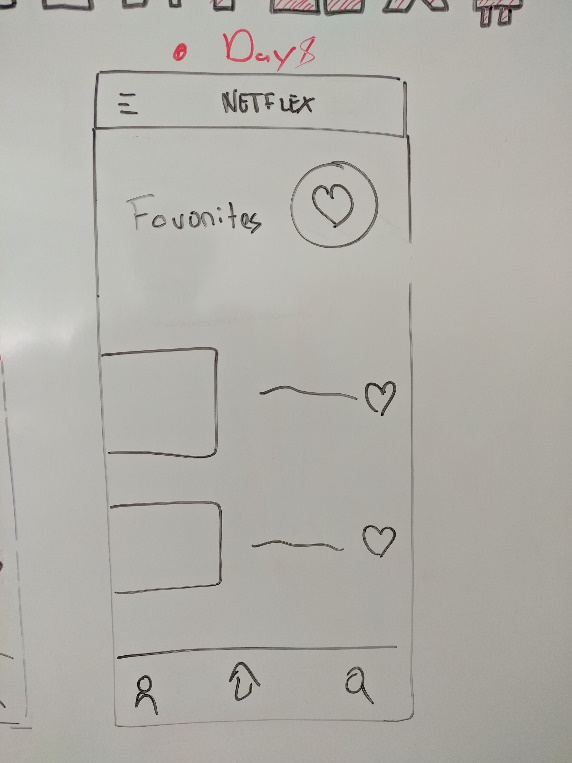 Day 8
NETFLEX
Favorites